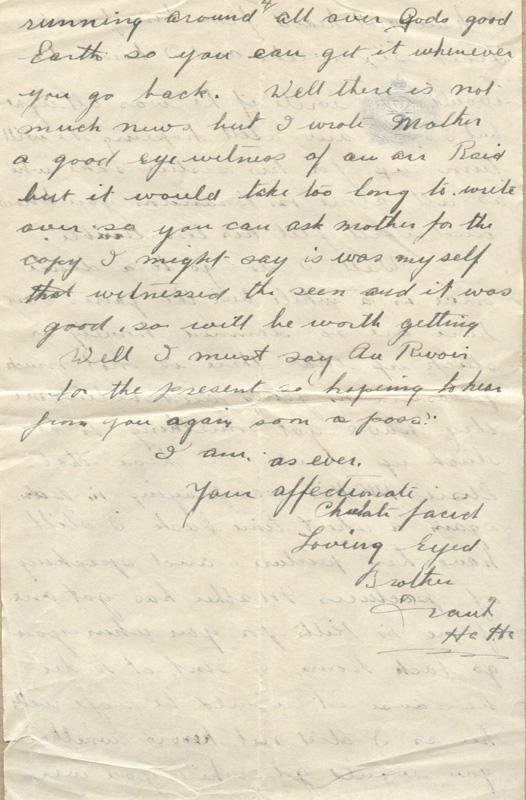 running around all over Gods good
Earth so you can get it whenever
you go back. Well there is not
much news but I wrote Mother
a good eye witness of an air Raid
but it would take too long to write
over so you can ask mother for the
copy I might say is was myself
that witnessed the seen and it was
good, so will be worth getting
Well I must say Au Rvoir
for the present so hoping to hear
from you again soon a poss:
I am. as ever.
Your affectionate
faced
Loving Eyed
Brother
Frank
Ha Ha